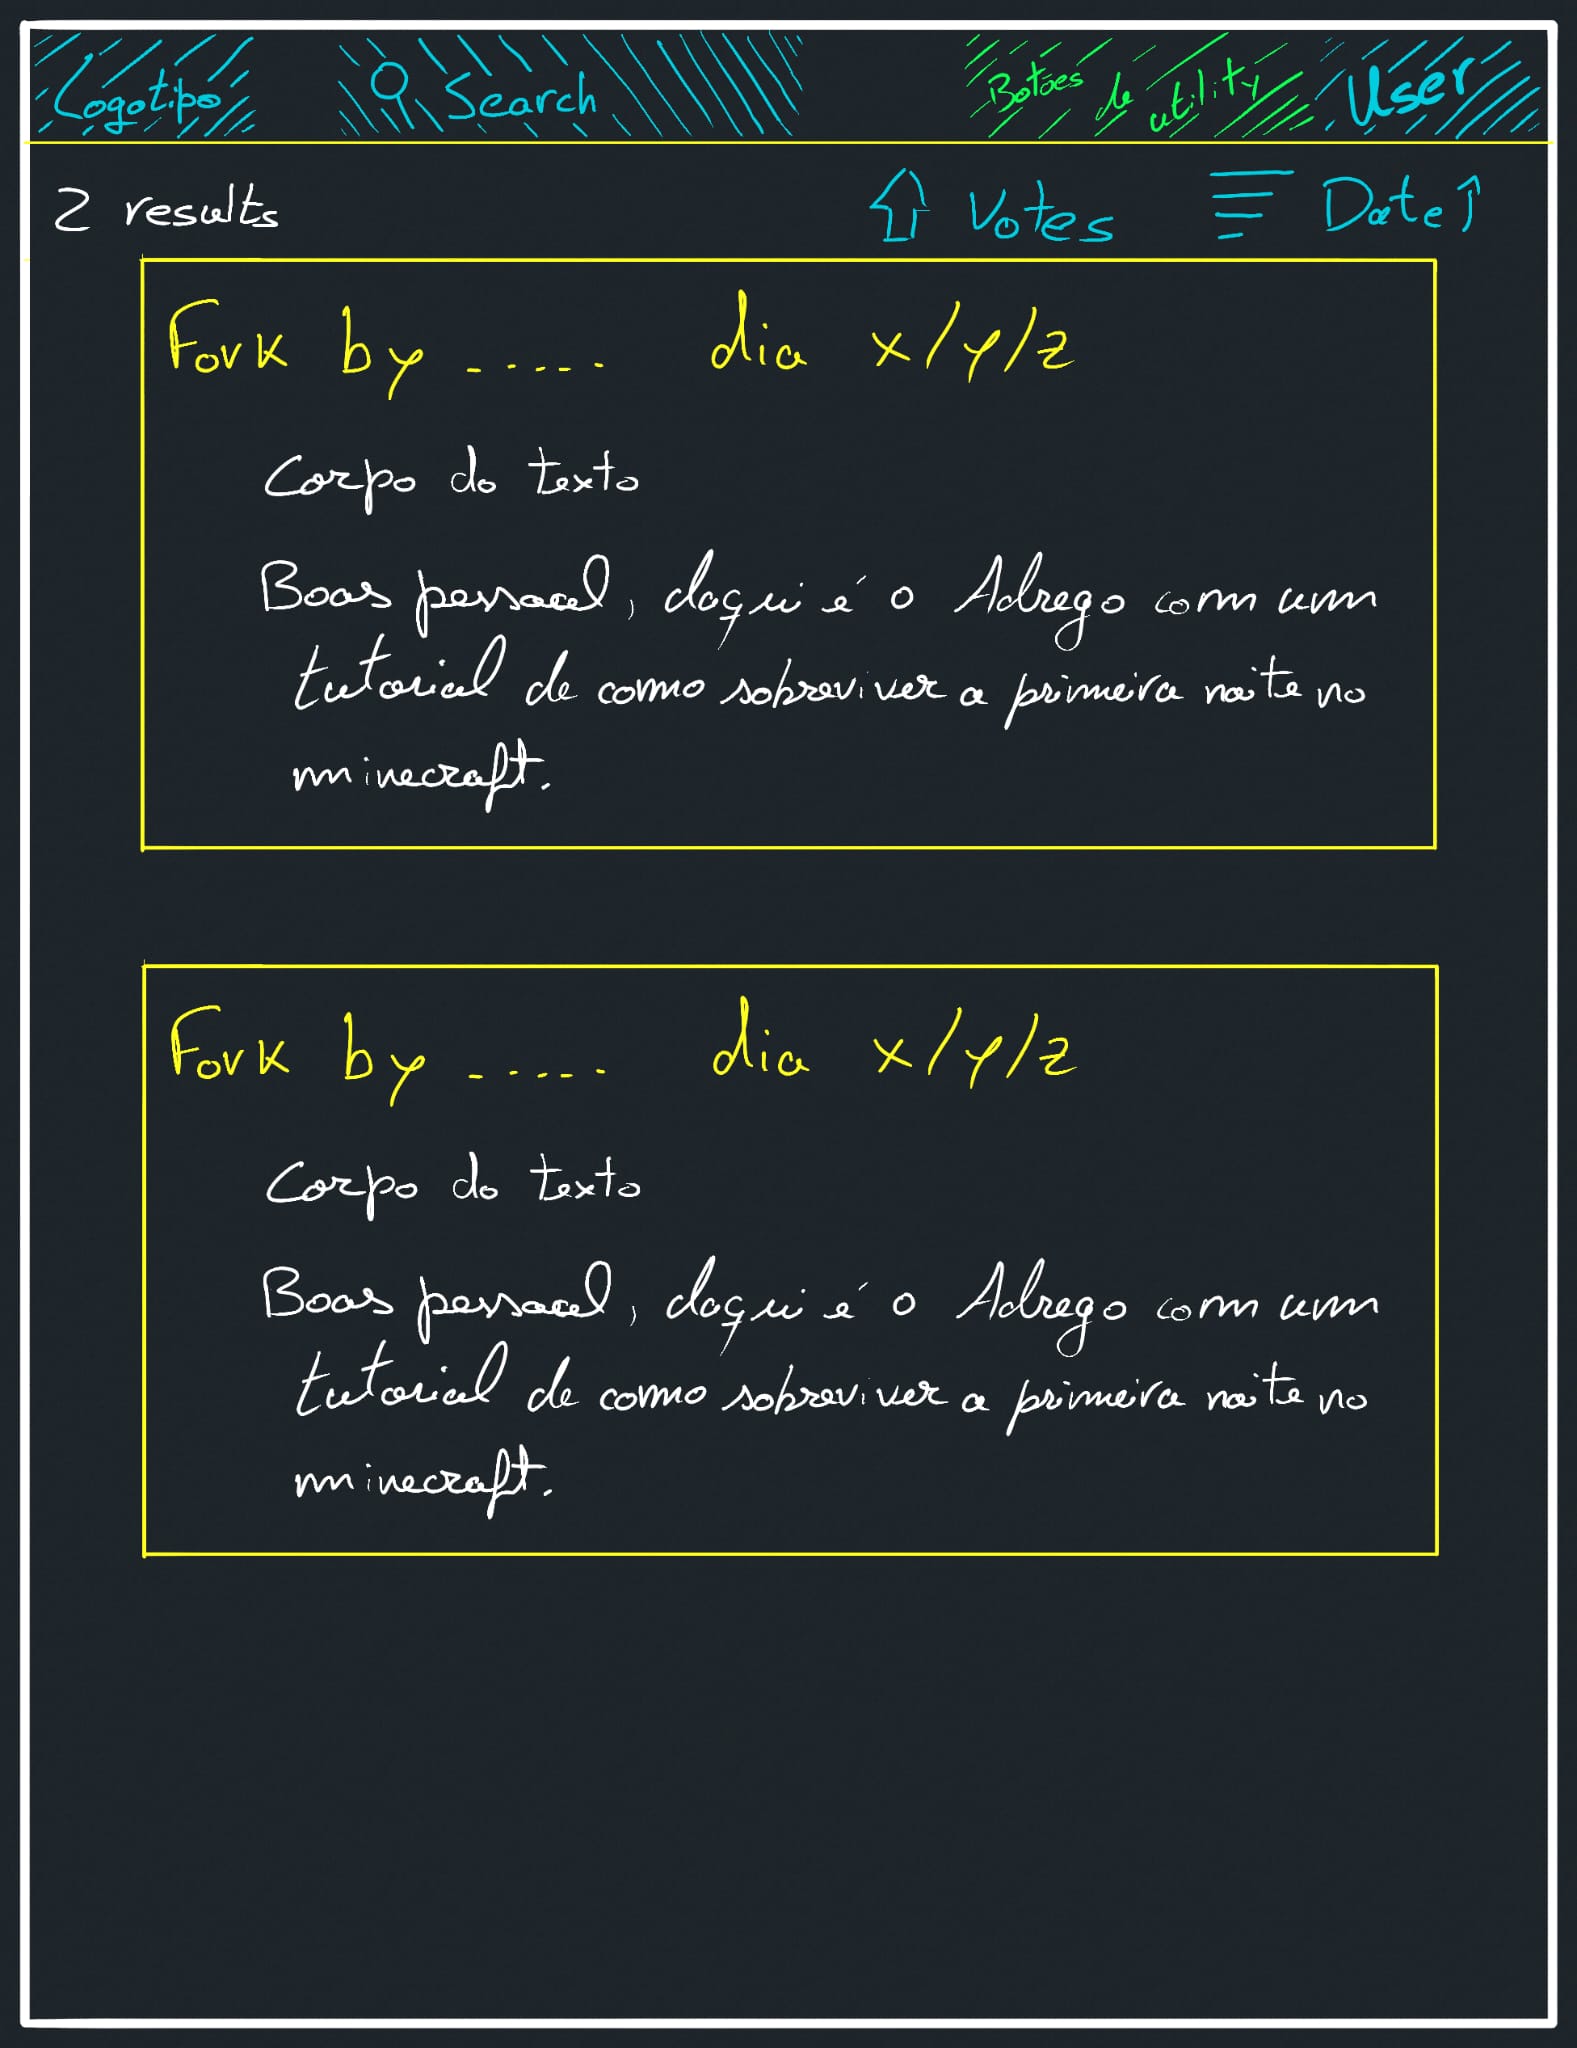 Logotipo Search Botões de utility User
2 results Votes Date
Fork by ..... dia x/y/z
Corpo do texto
Boas pessoal, daqui é o Adrego com um
tutorial de como sobreviver a primeira noite no
minecraft.
Fork by ..... dia x/y/z
Corpo do texto
Boas pessoal, daqui é o Adrego com um
tutorial de como sobreviver a primeira noite no
minecraft.